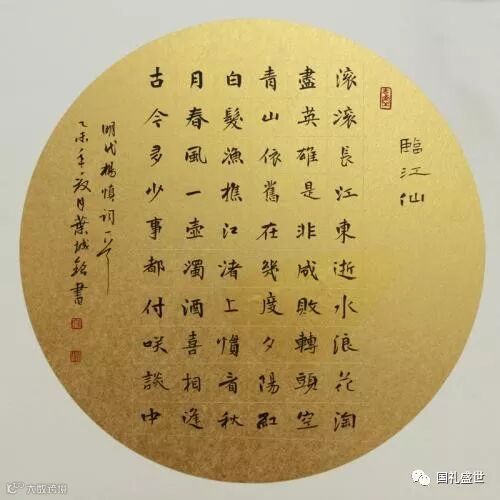 臨江仙
滚滚長江東逝水浪花淘
盡英雄是非成敗轉頭空
青山依舊在幾度夕陽紅
白髮漁樵江渚上慣看秋
月春風一壺濁酒喜相逢
古今多少事都付咲談中
明代楊慎詞一首
乙未年夜月葉城 書
大成跨境
国礼盛世